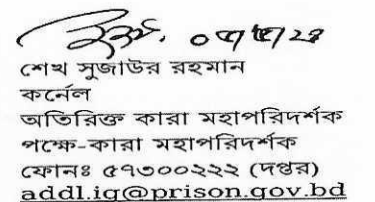 শেখ সুজাউর রহমান
কর্নেল
অতিরিক্ত কারা মহাপরিদর্শক
পক্ষে-কারা মহাপরিদর্শক
ফোনঃ ৫৭৩০০২২২ (দপ্তর)
addl.ig@prison.gov.bd